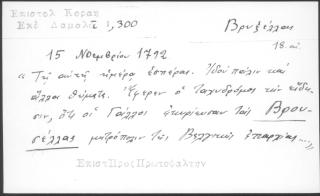 Επιστολ Κοραη
Εκδ Δαμαλᾶ Ι 1,300
Βρυξέλλαι
18. αἰ.
15 Νοεμβρίου 1792
« Τῇ αὐτῇ ἡμέρᾳ ἑσπέρας. Ἰδοὺ πάλιν καὶ
ἄλλα θαύματα. Ἔφερεν ὁ ταχυδρόμος τὴν εἴδη-
σιν, ὅτι οἱ Γάλλοι ἐκυρίευσαν τὰς Βρου-
σέλλας μητρόπολιν τῆς Βελγικῆς ἐπαρχίας...»
ΕπιστΠροςΠρωτοψαλτην